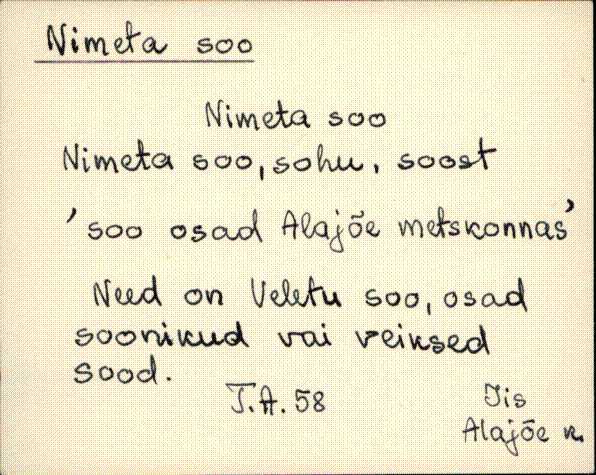 Nimeta soo
Nimeta soo
Nimeta soo, sohu, soost
'soo osad Alajõe metskonnas'
Need on Veletu soo, osad
soonikud vai veiksed
sood.
T.A. 58
Jis
Alajõe k.